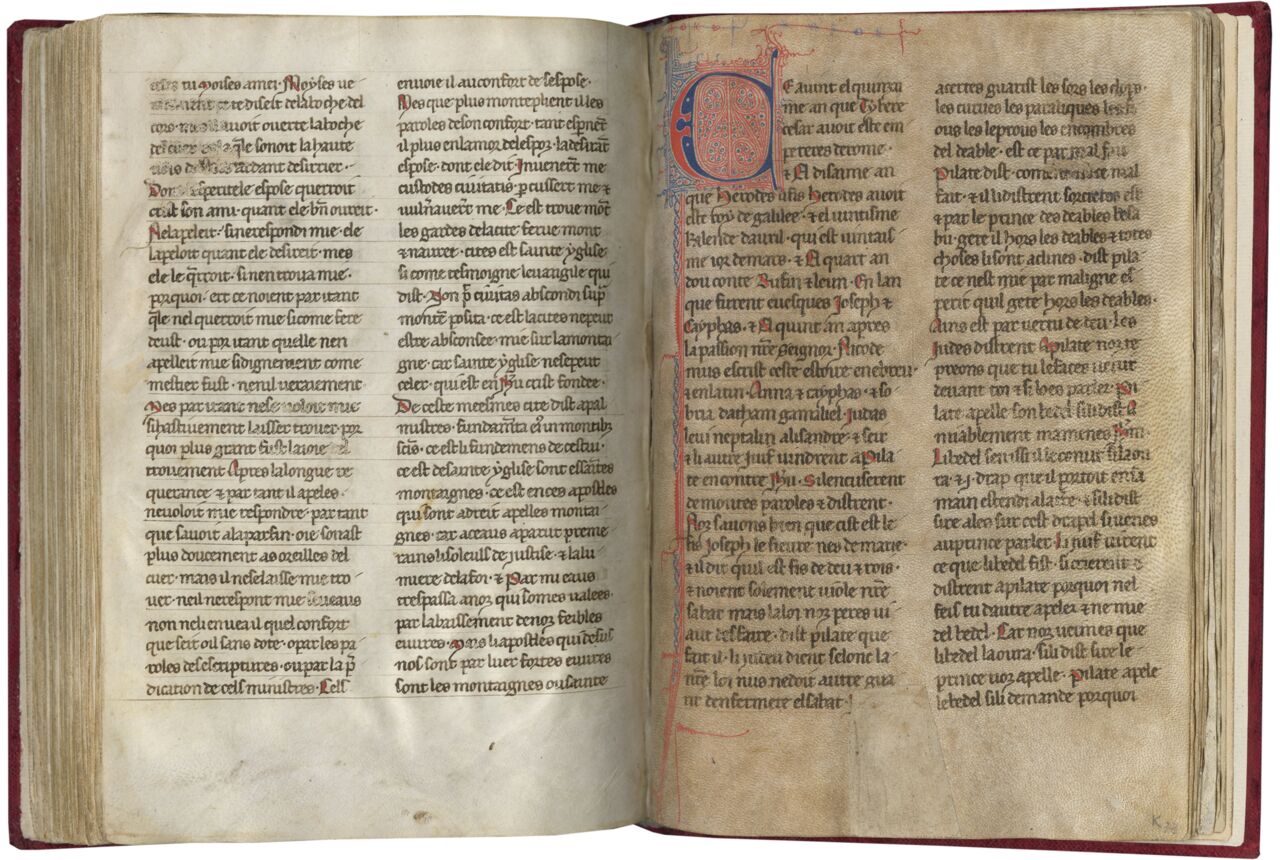 tu moises amei. Moyses ve
te diseit de la boche del
cors. avoit overte la boche
q̄le sonoit la haute
ardant desirrier.
petitele espose querroit
crist son ami. quant ele bn̄ ovreit.
Ne lapeleit. si ne respondi mie. ele
lapeloit quant ele desireit. mes
ele le q̄rroit. si nen trova mie.
por quoi. ert ce noient par itant
q̄le nel querroit mie si come fere
deust. ou por itant quelle nen
apelleit mie si dignement come
mestier fust. nenil veraiement
Mes par itant ne se voloit mie
si hastivement laisser trover. por
quoi plus grant fust la joie el
trovement Apres la longue re
querance & par tant il apeles.
ne voloit mie respondre. par tant
que savoit a la parfin. oie sonast
plus doucement as oreilles del
cuer. mais il ne se laisse mie tro
ver. ne il ne respont mie
non ne li envea il quel confort
que seit ou sans dote. o par les pa
roles des escriptures. ou par la p̄
dication de cels ministres. Cels
envoie il au confort de sespose.
Mes que plus monteplient il les
paroles de son confort. tant esprent
il plus en lamor de lespos. la desirāt
espose. dont ele dit. Invenerūt me
custodes civitatis. percusserūt me &
vuln̄averūt me. Ce est trove mōt
les gardes de la cite ferue mont
& nauree. cites est sainte yglise
si come tesmoigne levangile qui
dist. Non p̄t civitas abscondi sup̄
montē posita. ce est la cites ne peut
estre absconsee. mise sur la montai
gne. car sainte yglise ne se peut
celer. qui est en ih̄u crist fondee.
De ceste meesmes cite dist apal
mistres. fundamēta ei' in montib;
scīs. ce est li fundemens de cestui.
ce est de sainte yglise sont es saintes
montaignes. ce est en ces apostles
qui sont a dreit apelles montai
gnes. car a ceaus aparut preme
rains li soleuls de justise. & la lu
miere de la foi. & Par mi eaus
trespassa anoz qui somes valees.
par labaissement de noz feibles
euvres. Mais li apostles qui desus
nos sont par lver fortes euvres
sont les montaignes ou sainte
CE avint el quinzai
me an que Tybere
cesar avoit este em
pereres de rome.
& El disaime an
que Herodes. li fis Herodes avoit
este roy de galilee. & el vintisme
kalende davril. qui est vintais
me jor de mars. & El quart an
dou conte Rufin & leun. En lan
que furent evesques Joseph &
Cayphas. & El quint an apres
la passion nr̄e seignor. Nicode
mus escrist ceste estoire en ebreu.
& en latin. Anna & cayphas. & so
bria datham gamaliel. Judas
levi neptalin alisandre. & seir
& li autre juif vindrent a Pila
te encontre ih̄u. Si lencuserent
de moutes paroles & distrent.
Noz savons bien que cist est le
fis Joseph le fevre nes de marie.
& il dit quil est fis de deu & rois.
& noient solement viole nr̄e
sabat mais la loi noz peres vi
aut desfaire. dist pilate que
fait il. li juceu dient selonc la
nr̄e loi nus ne doit autre gua
rir denfermete el sabat.
acertes guarist les sors les clops.
les curvés les paraliques les
ous les leprous les encombres
del deable. est ce par mal fait
Pilate dist. coment ce mal
fait. & il distrent sorcieros est
& par le prince des deables belza
bu. gete il hors les deables & totes
choses li sont aclines. dist pila
te ce nest mie par maligne es
perit quil gete hors les deables.
Ains est par vertu de deu. Les
Judes distrent a pilate noz te
preons que tu le faces venir
devant toi & si loés parler Pi
late apelle son bedel si li dist a
miablement mamenes ih̄m
Li bedel sen issi il le conut si laou
ra. & .i. drap que il portoit en sa
main estendi a la tere. & si li dist
sire ales sur cest drapel si venes
au prince parler. Li juif virent
ce que li bedel fist. si crierent &
distrent a pilate porquoi nel
feis tu dautre apeler & ne mie
del bedel. Car noz veimes que
li bedel la oura. si li dist sire le
prince voz apelle. Pilate apele
le bedel si li demande porquoi